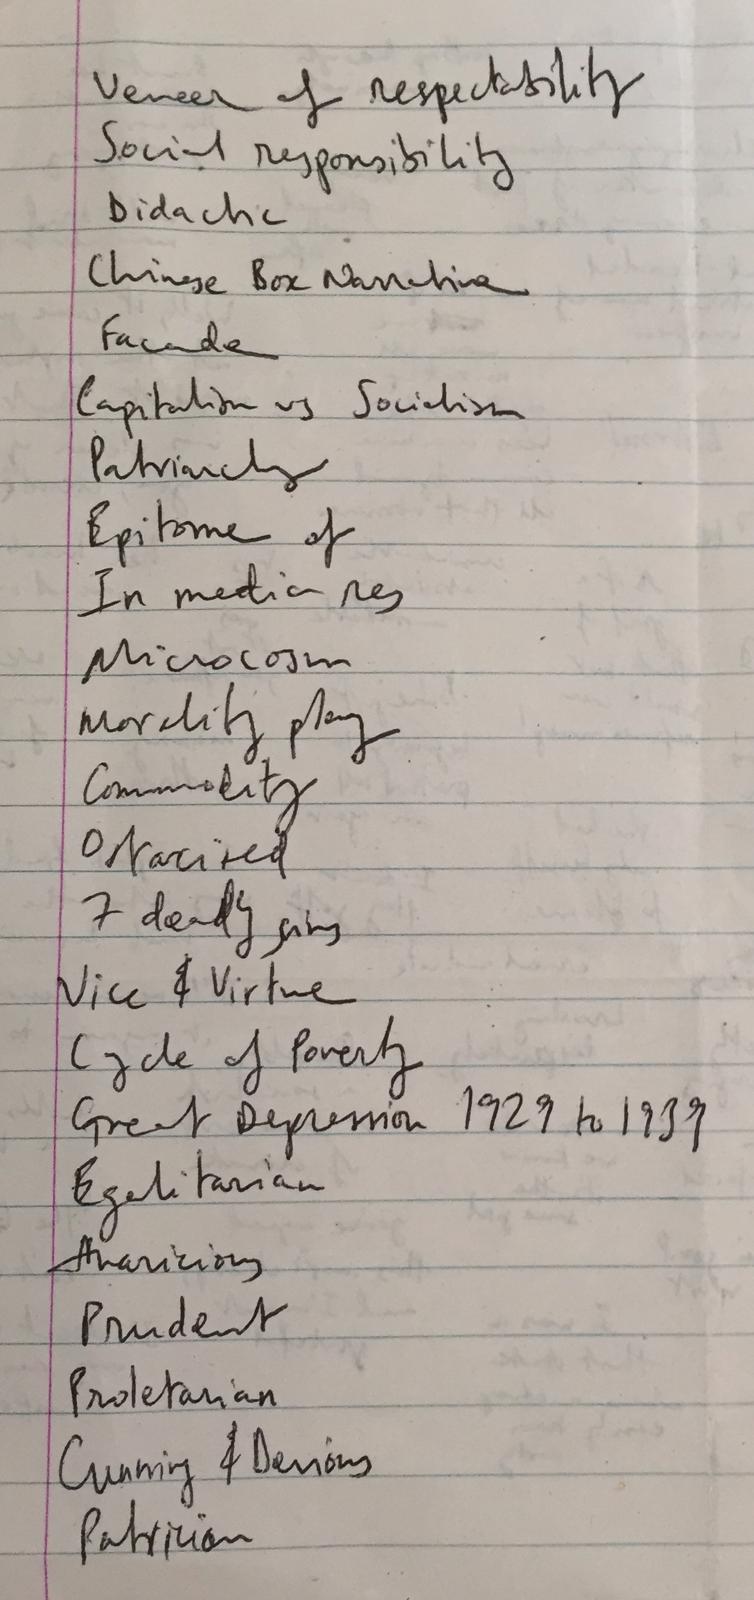 Veneer of respectability
Social responsibility
Didactic
Chinese Box Narrative
Facade
Capitalism vs Socialism
Patriarchy
Epitome of
In media res
Microcosm
Morality play
Commodity
Ostracised
7 deadly sins
Vice & Virtue
Cycle of Poverty
Great Depression 1929 to 1939
Egalitarian
Avaricious
Prudent
Proletarian
Cunning & Devious
Patrician